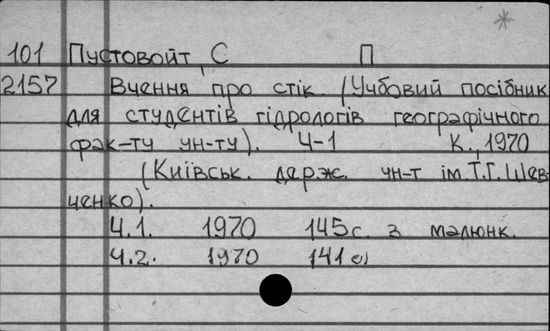 101 Пустовойт, С П
2157 Вчення про стік. (Учбовий посібник
для студентів гідрологів географічного
фак-ту ун-ту). Ч-1 К., 1970
(Київськ. держ. ун-т ім. Т.Г. Шев-
ченко).
Ч.1. 1970 145 с. з малюнк.
Ч.2. 1970 141 с)